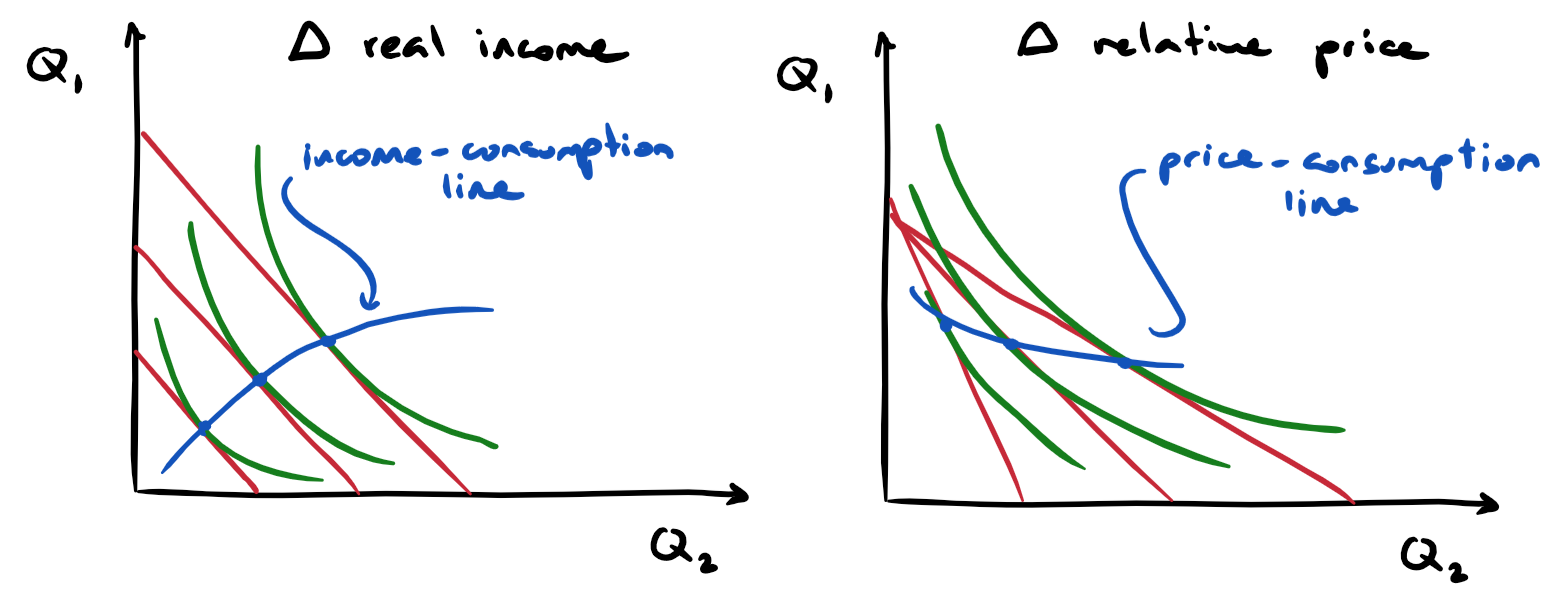 Δ real income
Q₁
income-consumption
line
Q₂
Δ relative price
Q₁
price-consumption
line
Q₂